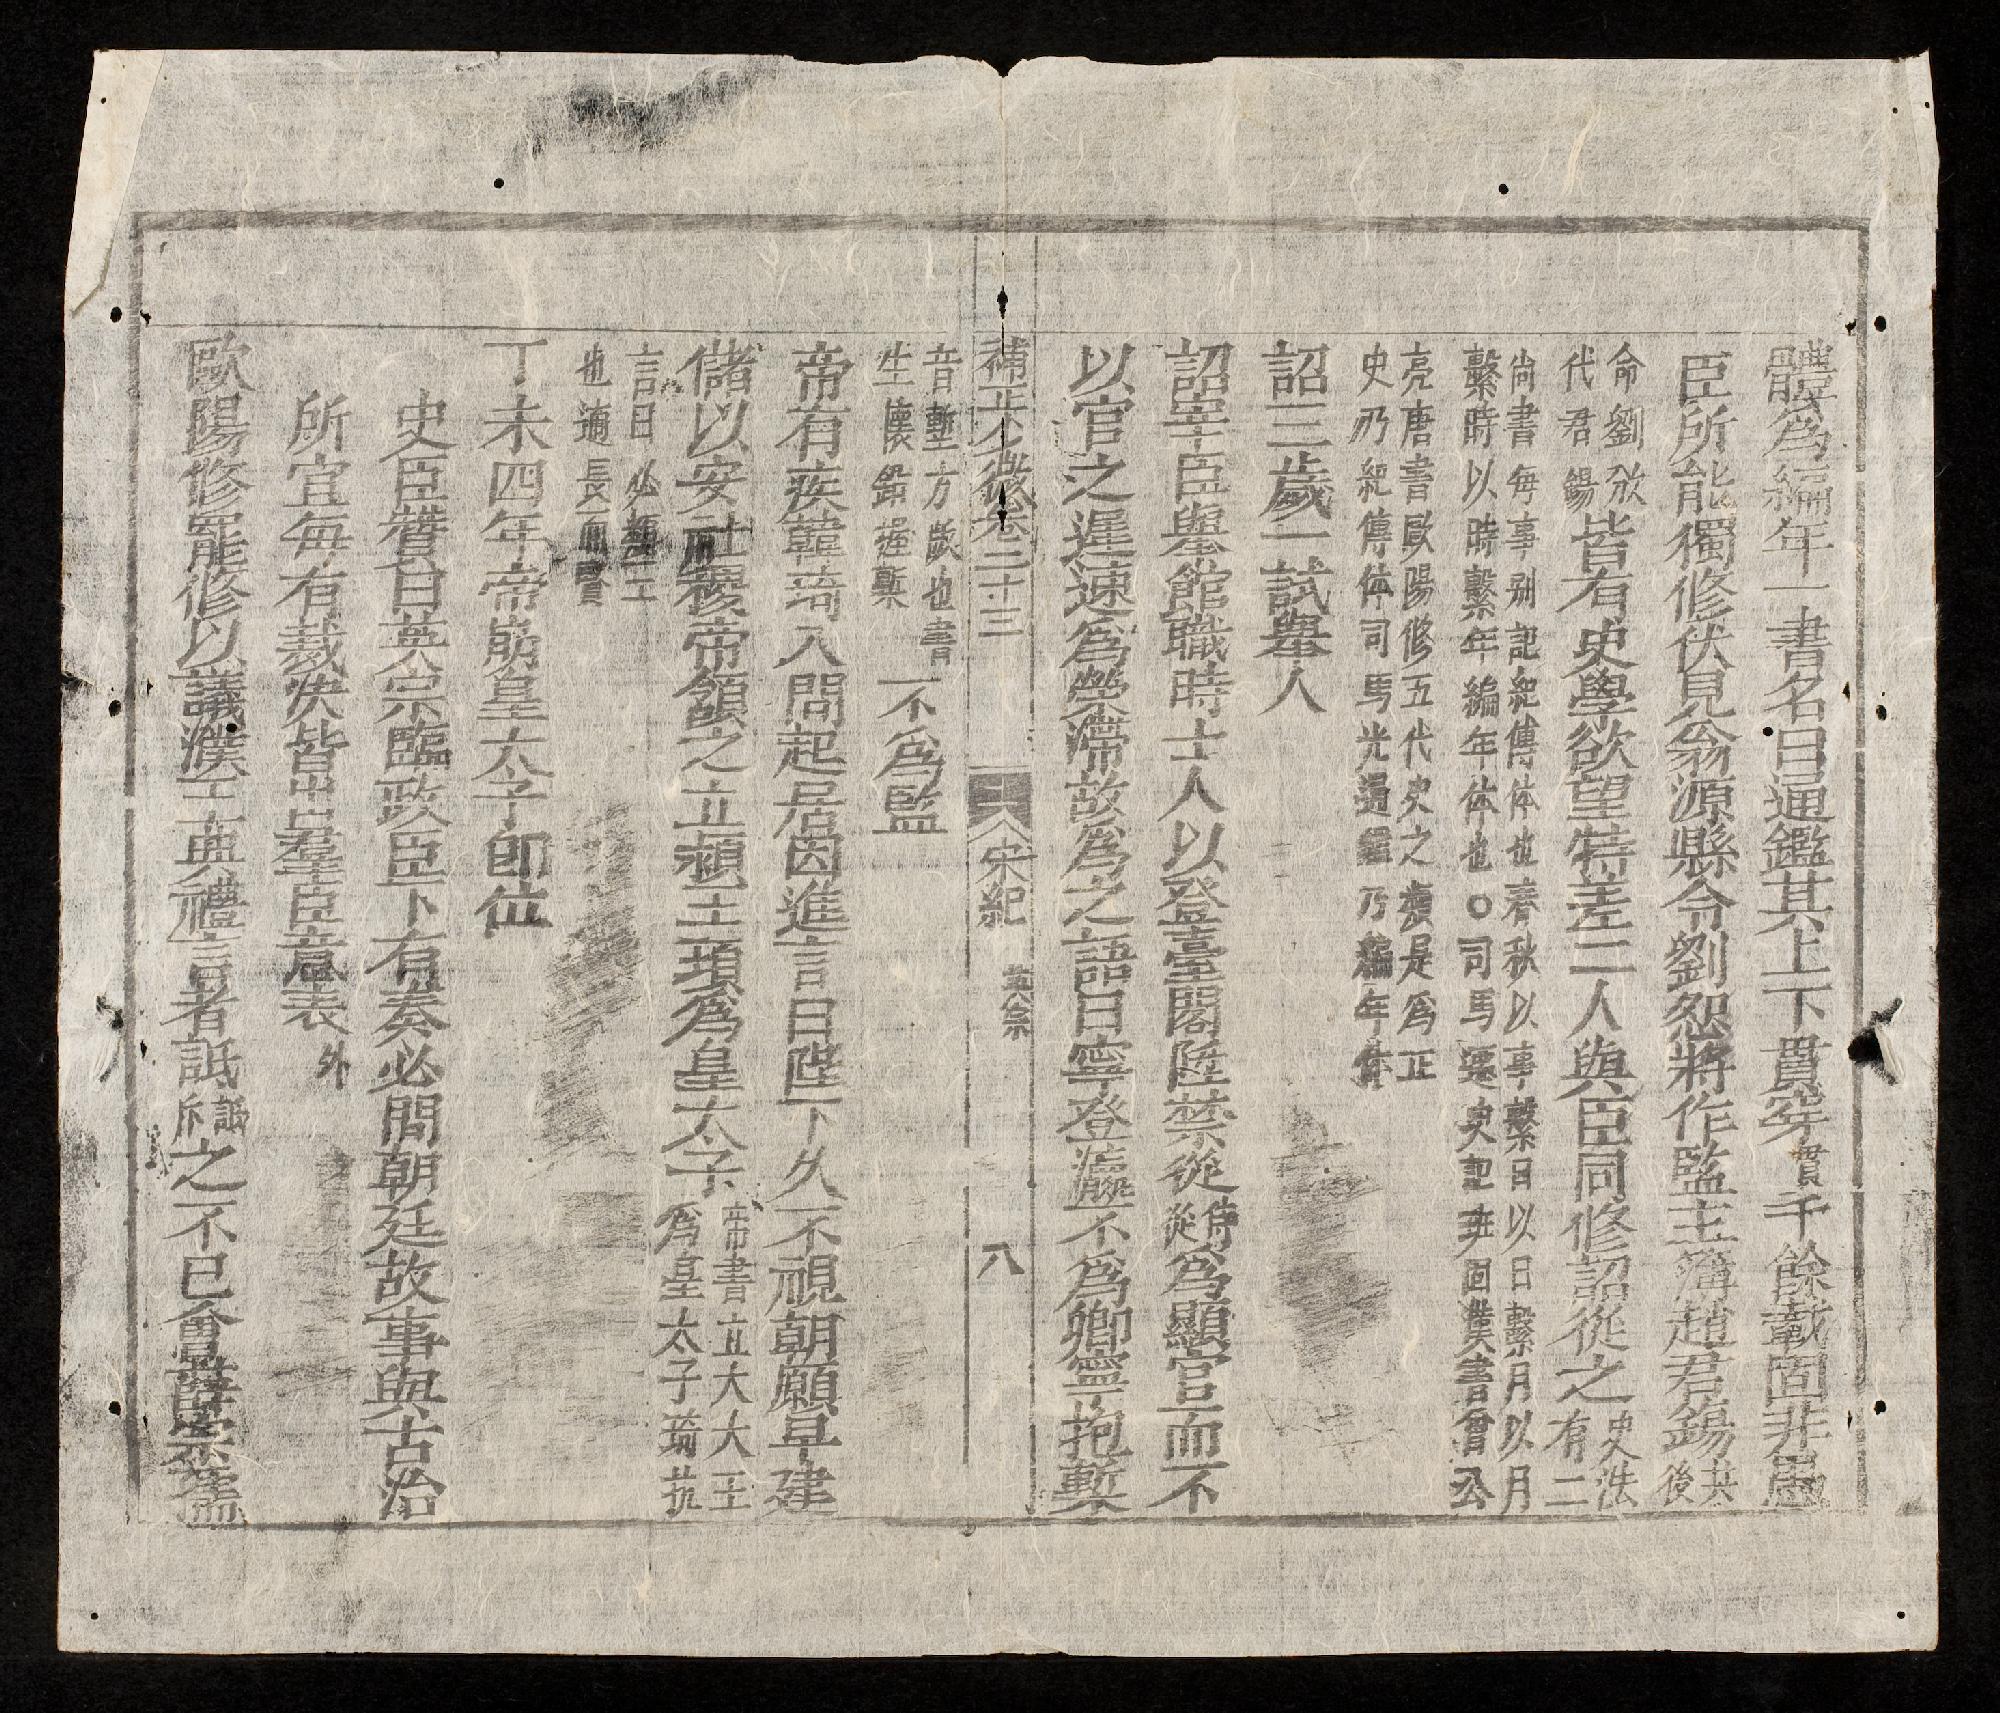 體爲編年一書名曰通鑑其上下貫穿貫千餘載固非愚
臣所能獨修伏見翁源縣令劉恕將作監主簿趙君錫共後
命劉攽
代君錫皆有史學欲望特差二人與臣同修詔從之史法
有二
尚書每事别記紀傳体也春秋以事繫日以日繫月以月
繫時以時繫年編年体也○司馬遷史記班固漢書曾公
亮唐書歐陽修五代史之類是爲正
史乃紀傳体司馬光通鑑乃編年体
詔三歲一試舉人
詔宰臣舉館職時士人以登臺閣陞禁從侍從爲顯官而不
以官之遲速爲榮滯故爲之語曰寧登瀛不爲卿寧抱槧
補正少微卷二十三 宋紀 英宗 八
音塹方斷也書
生懷鉛握槧不爲監
帝有疾韓琦入問起居因進言曰陛下久不視朝願早建
儲以安社稷帝頷之立潁王頊爲皇太子帝書立大大王
爲皇太子琦抗
言曰必潁王
也適長而賢
丁未四年帝崩皇太子即位
史臣贊曰英宗臨政臣下有奏必問朝廷故事與古治
所宜每有裁決皆出羣臣意表外
歐陽修罷修以議濮王典禮言者詆詆斥之不已會薛宗孺